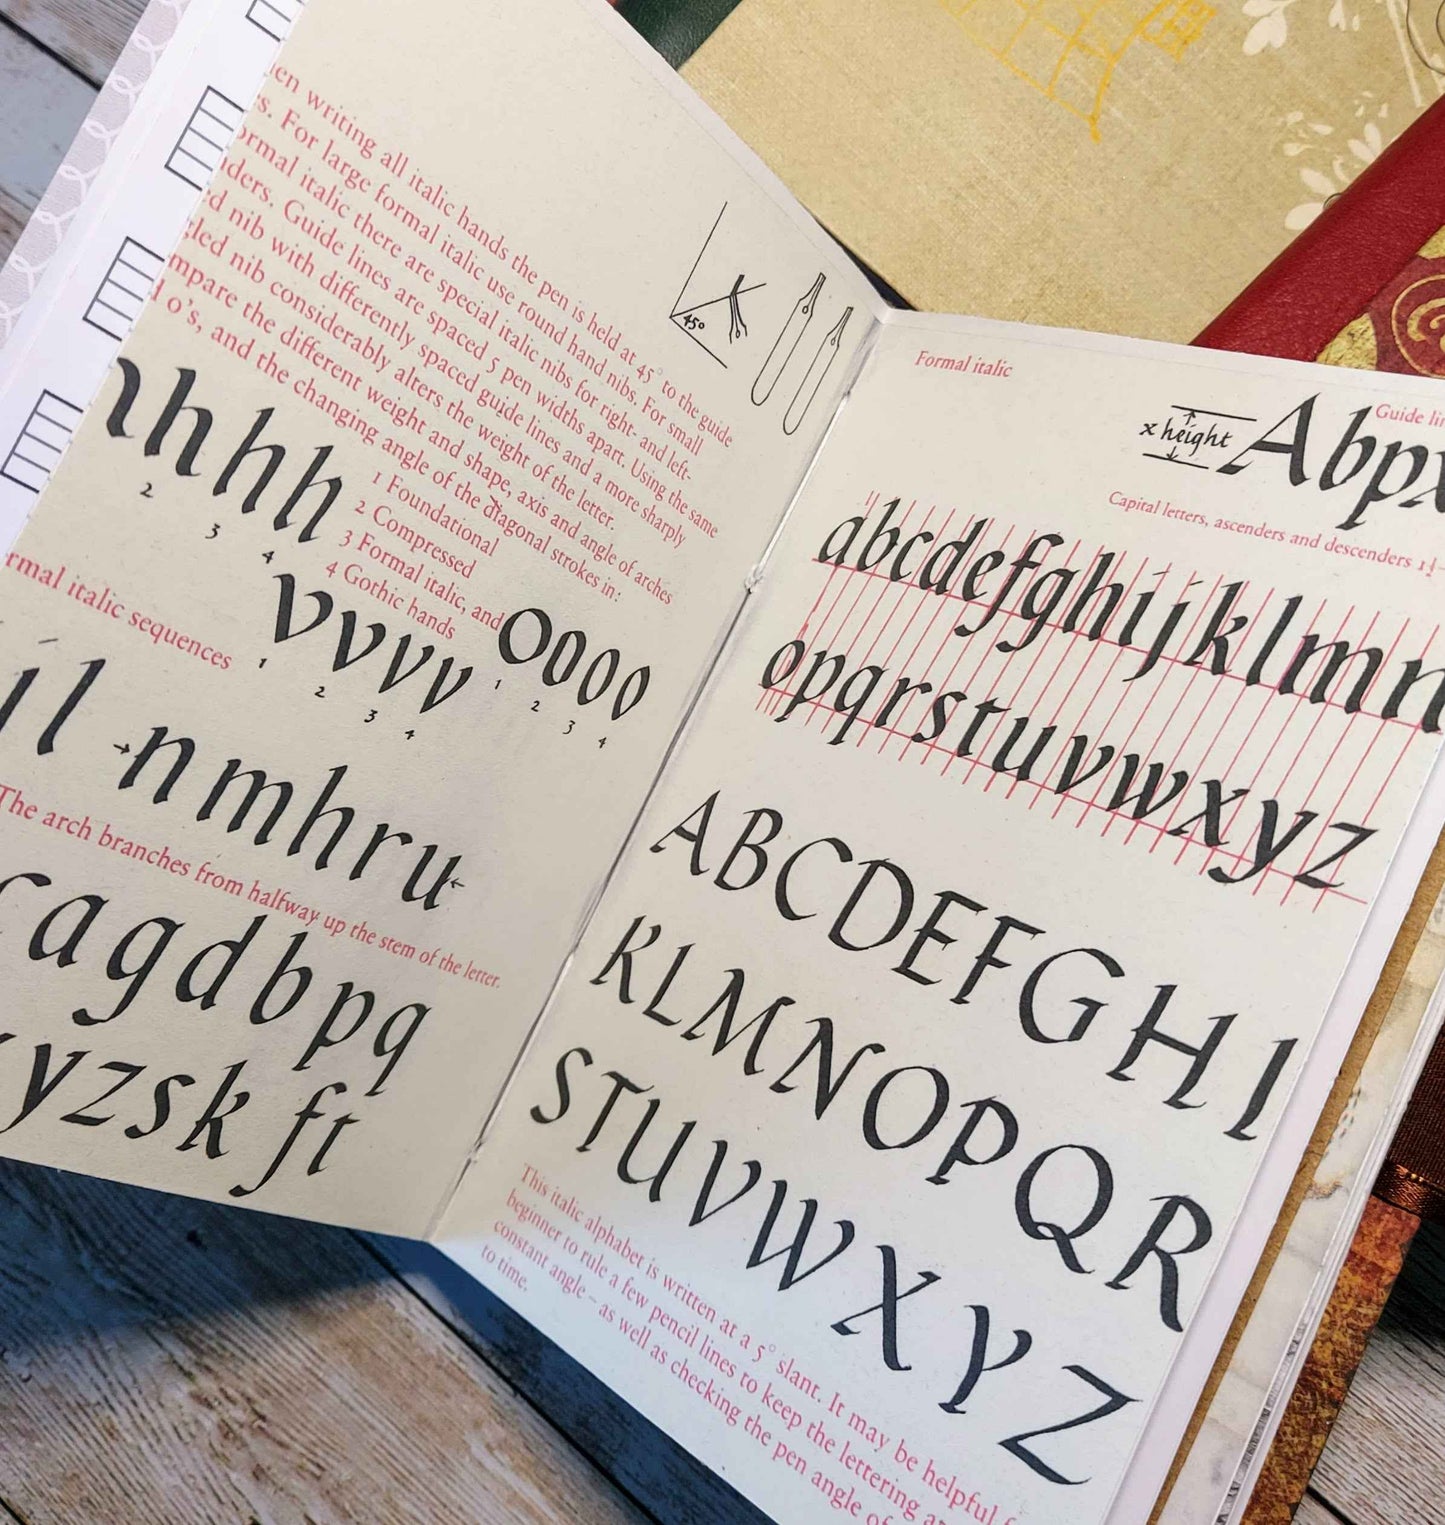 writing all italic hands the pen is held at 45° to the guide
For large formal italic use round hand nibs. For small
formal italic there are special italic nibs for right- and left-
Guide lines are spaced 5 pen widths apart. Using the same
nib with differently spaced guide lines and a more sharply
nib considerably alters the weight of the letter.
the different weight and shape, axis and angle of arches
o's, and the changing angle of the diagonal strokes in:
1 Foundational
2 Compressed
3 Formal italic, and
4 Gothic hands
45°
h h h
2 3 4
v v v v
1 2 3 4
o o o o
1 2 3 4
italic sequences
l n m h r u
The arch branches from halfway up the stem of the letter.
c a g d b p q
y z s k f t
Formal italic
Guide
x height
Abpx
Capital letters, ascenders and descenders 1½
abcdefghijklmn
opqrstuvwxyz
ABCDEFGHI
KLMNOPQR
STUVWXYZ
This italic alphabet is written at a 5° slant. It may be helpful
beginner to rule a few pencil lines to keep the lettering
constant angle – as well as checking the pen angle
to time.